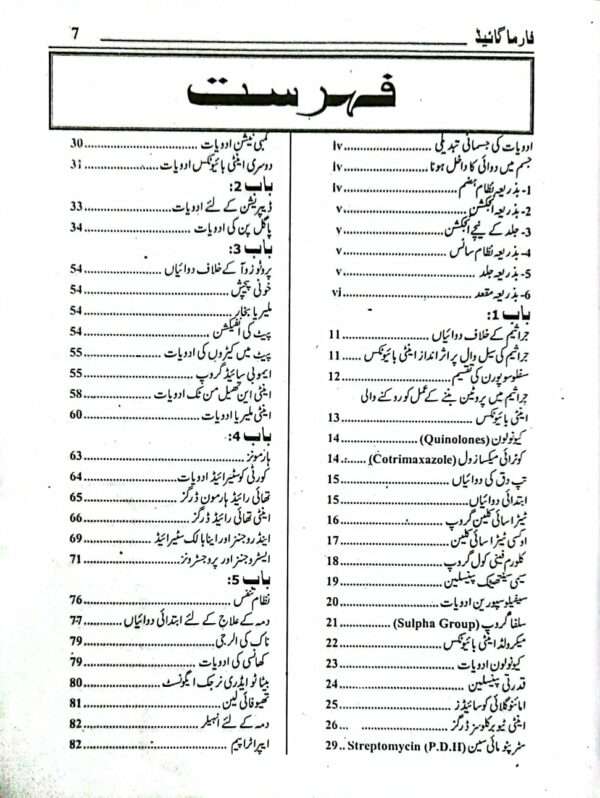 فارما گائیڈ 7
فہرست
ادویات کی جسمانی تبدیلی iv
جسم میں دوائی کا داخل ہونا iv
1- بذریعہ نظام ہضم iv
2- بذریعہ انجکشن v
3- جلد کے نیچے انجکشن v
4- بذریعہ نظام سانس v
5- بذریعہ جلد v
6- بذریعہ مقعد vi
باب 1:
جراثیم کے خلاف دوائیاں 11
جراثیم کی سیل وال پر اثر انداز اینٹی بائیوٹکس 11
سفلوسپورن کی تقسیم 12
جراثیم میں پروٹین بننے کے عمل کو روکنے والی
اینٹی بائیوٹکس 13
کینولون (Quinolones) 14
کوٹرائی میکسازول (Cotrimaxazole) 14
تپ دق کی دوائیاں 15
ابتدائی دوائیاں 15
ٹیٹراسائی کلین گروپ 16
اوکسی ٹیٹراسائی کلین 17
کلورم فینی کول گروپ 18
سیمی سینتھیٹک پنیسلین 19
سیفیلوسپورین ادویات 20
سلفا گروپ (Sulpha Group) 21
میکرولڈ اینٹی بائیوٹکس 22
کینولون ادویات 23
قدرتی پنیسلین 24
امائنوگلائی کوسائیڈز 25
اینٹی ٹیوبرکلوسز ڈرگز 26
سٹرپٹومائی سین Streptomycin (P.D.H) 29
کمبی نیشن ادویات 30
دوسری اینٹی بائیوٹکس ادویات 31
باب 2:
ڈیپریشن کے لئے ادویات 33
پاگل پن کی ادویات 34
باب 3:
پروٹوزوآ کے خلاف دوائیاں 54
خونی پیچش 54
ملیریا بخار 54
پیٹ کی انفیکشن 54
پیٹ میں کیڑوں کی ادویات 55
ایموبی سائیڈ گروپ 55
اینٹی این تھیل من ٹک ادویات 58
اینٹی ملیریا ادویات 60
باب 4:
ہارمونز 63
کورٹی کوسٹیرائیڈ ادویات 64
تھائی رائیڈ ہارمون ڈرگز 65
اینٹی تھائی رائیڈ ڈرگز 66
اینڈروجنز اور اینابالک سٹیرائیڈ 69
ایسٹروجنز اور پروجسٹرونز 71
باب 5:
نظام تنفس 76
دمہ کے علاج کے لئے ابتدائی دوائیاں 77
ناک کی الرجی 79
کھانسی کی ادویات 79
بیٹا ٹو ایڈری نرجک ایگونسٹ 80
تھیوفائی لین 81
دمہ کے لئے انہیلر 82
ایپراٹراپیم 82